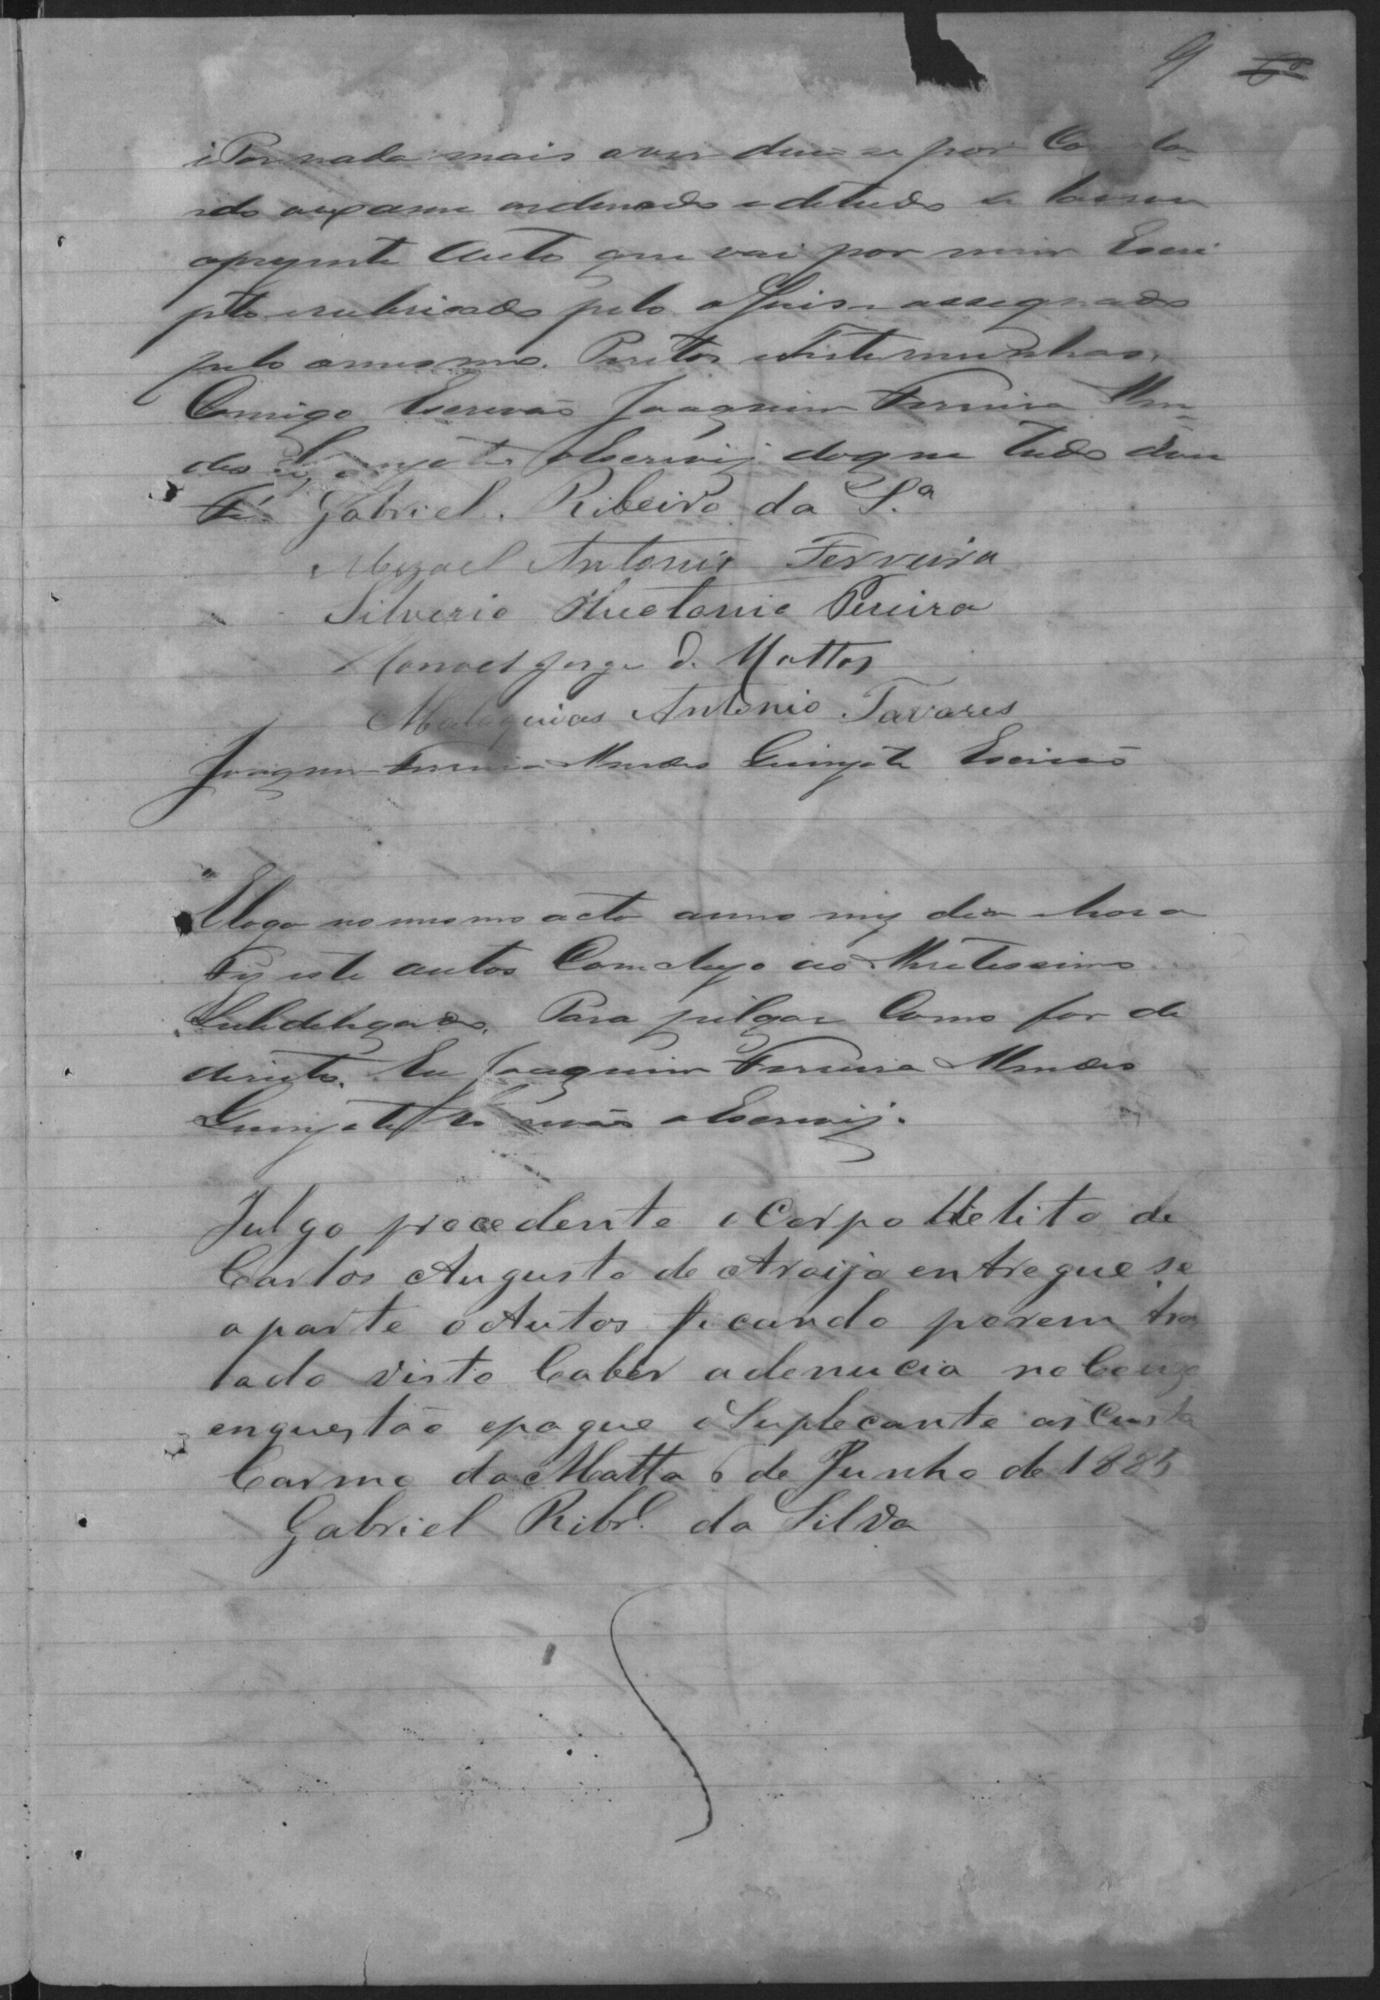 9
i Por nada mais aver deu se por Conclu-
ido oexame ordenado e detudo se lavrou
opresente Auto que vai por mim Escri
pto rubricado pelo o Juis e assegnado
pelo omesmo. Peritos e Testemunhas,
Comigo Escrivão Joaquim Ferreira Men-
des oEscrevij doque tudo dou
Fé. Gabriel. Ribeiro da S.ª
Mizael Antonio Ferreira
Silverio Pereira
Manoel Jorge d. Mattos
Malaquias Antonio Tavares
Joaquim Ferreira Mendes Escrivão
Elogo nomesmo acto anno mez dia e hora
Fiz este autos Comcluzo ao Miretissimo
Subdelegado. Para julgar Como for de
direito. Eu Joaquim Ferreira Mendes
Escrivão oEscrevij.
Julgo procedente o Corpo Delito de
Carlos Augusto de Araijo entregue se
aparte oAutos ficando porem tras
lado visto Caber adenucia no Cauzo
enquestão epague o Suplecante as Custa
Carmo da Matta 6 de Junho de 1885
Gabriel Ribr.º da Silva